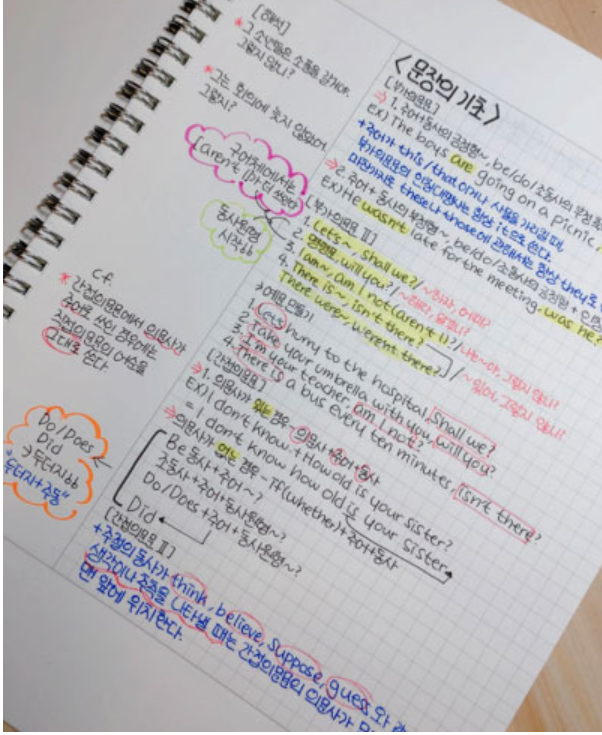 [해석]
* 그 소년들은 소풍을 갈거야.
그렇지 않니?
* 그는 회의에 늦지 않았어
그렇지?
구어체에서는
aren't I가 더 쓰인다
동사원형
시작bb
c.f.
* 간접의문문에서 의문사가
주어로 쓰인 경우에는
직접의문문의 어순을
그대로 쓴다
Do/Does
Did
→두더지bb
"두더지+주동"
<문장의 기초>
[부가의문문]
⇒ 1. 주어+동사의 긍정형~, be/do/조동사의 부정
EX) The boys are going on a picnic,
+주어가 this/that이거나 사물을 가리킬 때,
부가의문문의 인칭대명사는 항상 it으로 쓴다.
마찬가지로 these나 those에 관해서는 항상 they로
⇒ 2. 주어+동사의 부정형~, be/do/조동사의 긍정형+인칭
EX) He wasn't late for the meeting, was he?
[부가의문문 II]
1. Let's~, shall we? /~하자, 어때?
2. 명령문, will you? /~해라, 알겠니?
3. I am~, am I not(aren't I)? /나는~야, 그렇지 않니?
4. There is~, isn't there?
There were~, weren't there? /~있어, 그렇지 않니?
→예문 만들기
1. Let's hurry to the hospital, shall we?
2. Take your umbrella with you, will you?
3. I'm your teacher am I not?
4. There is a bus every ten minutes, isn't there?
[간접의문문]
⇒ 1. 의문사가 있는 경우 - 의문사+주어+동사
EX) I don't know. + How old is your sister?
= I don't know how old is your sister.
⇒ 의문사가 없는 경우 - if(whether)+주어+동사
Be동사+주어~?
조동사+주어+동사원형~?
Do/Does+주어+동사원형~?
Did
[간접의문문 II]
+주절의 동사가 think, believe, suppose, guess 와
생각이나 추측을 나타낼 때는 간접의문문의 의문사가
맨 앞에 위치한다.